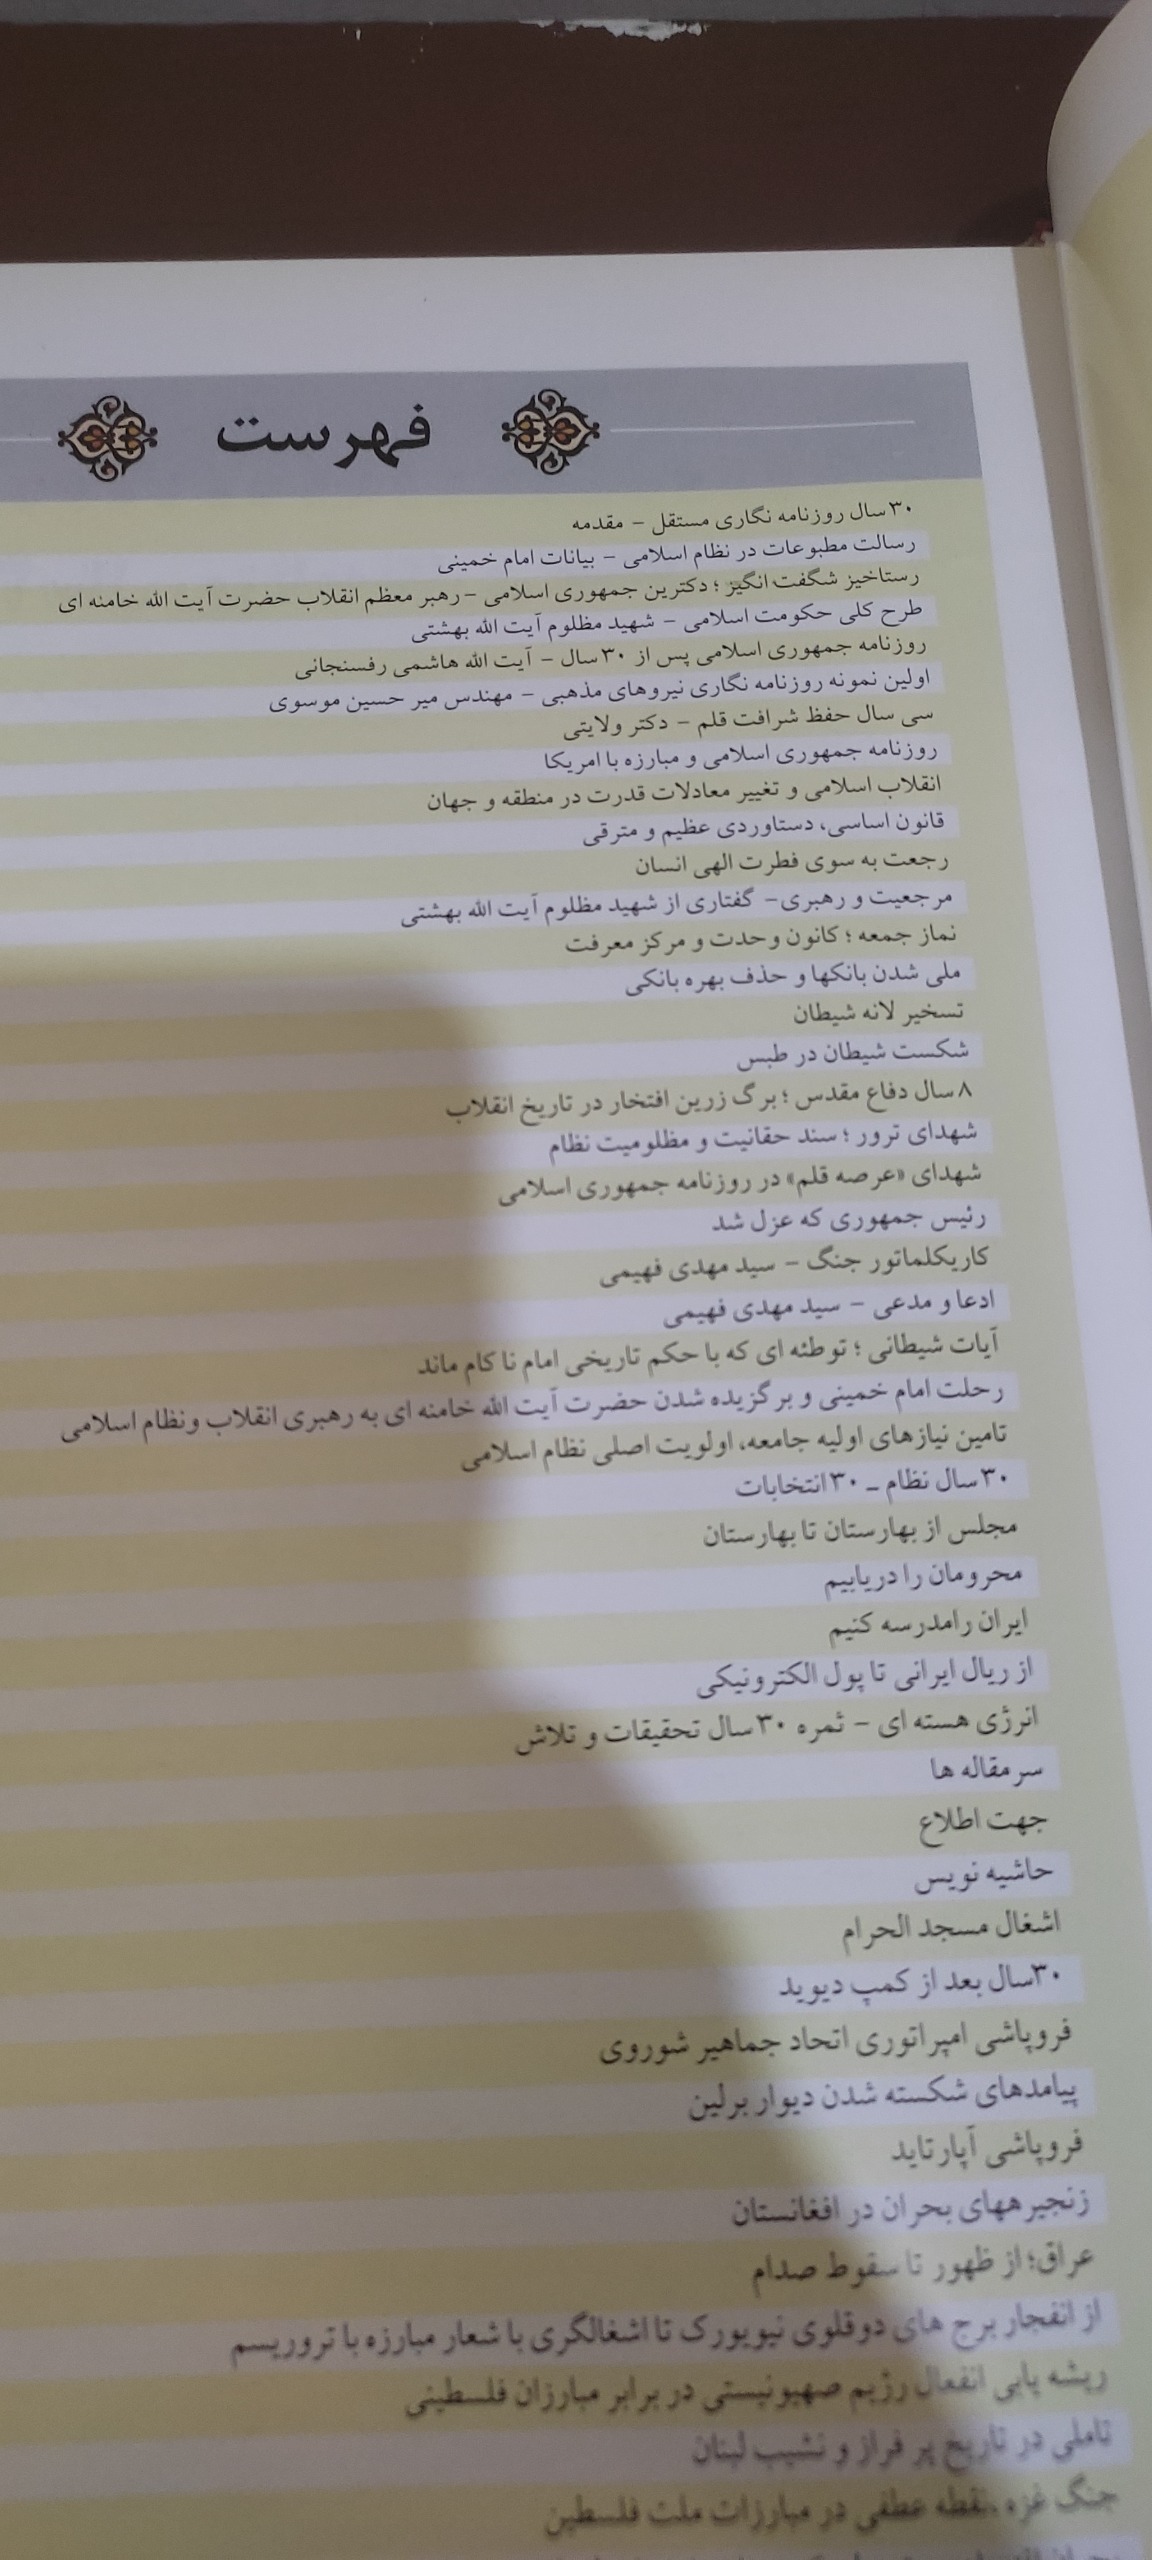 فهرست
۳۰ سال روزنامه نگاری مستقل - مقدمه
رسالت مطبوعات در نظام اسلامی - بیانات امام خمینی
رستاخیز شگفت انگیز ؛ دکترین جمهوری اسلامی - رهبر معظم انقلاب حضرت آیت الله خامنه ای
طرح کلی حکومت اسلامی - شهید مظلوم آیت الله بهشتی
روزنامه جمهوری اسلامی پس از ۳۰ سال - آیت الله هاشمی رفسنجانی
اولین نمونه روزنامه نگاری نیروهای مذهبی - مهندس میر حسین موسوی
سی سال حفظ شرافت قلم - دکتر ولایتی
روزنامه جمهوری اسلامی و مبارزه با امریکا
انقلاب اسلامی و تغییر معادلات قدرت در منطقه و جهان
قانون اساسی، دستاوردی عظیم و مترقی
رجعت به سوی فطرت الهی انسان
مرجعیت و رهبری- گفتاری از شهید مظلوم آیت الله بهشتی
نماز جمعه ؛ کانون وحدت و مرکز معرفت
ملی شدن بانکها و حذف بهره بانکی
تسخیر لانه شیطان
شکست شیطان در طبس
۸ سال دفاع مقدس ؛ برگ زرین افتخار در تاریخ انقلاب
شهدای ترور ؛ سند حقانیت و مظلومیت نظام
شهدای «عرصه قلم» در روزنامه جمهوری اسلامی
رئیس جمهوری که عزل شد
کاریکلماتور جنگ - سید مهدی فهیمی
ادعا و مدعی - سید مهدی فهیمی
آیات شیطانی ؛ توطئه ای که با حکم تاریخی امام نا کام ماند
رحلت امام خمینی و برگزیده شدن حضرت آیت الله خامنه ای به رهبری انقلاب ونظام اسلامی
تامین نیازهای اولیه جامعه، اولویت اصلی نظام اسلامی
۳۰ سال نظام ـ ۳۰ انتخابات
مجلس از بهارستان تا بهارستان
محرومان را دریابیم
ایران رامدرسه کنیم
از ریال ایرانی تا پول الکترونیکی
انرژی هسته ای - ثمره ۳۰ سال تحقیقات و تلاش
سرمقاله ها
جهت اطلاع
حاشیه نویس
اشغال مسجد الحرام
۳۰سال بعد از کمپ دیوید
فروپاشی امپراتوری اتحاد جماهیر شوروی
پیامدهای شکسته شدن دیوار برلین
فروپاشی آپارتاید
زنجیرههای بحران در افغانستان
عراق؛ از ظهور تا سقوط صدام
از انفجار برج های دوقلوی نیویورک تا اشغالگری با شعار مبارزه با تروریسم
ریشه یابی انفعال رژیم صهیونیستی در برابر مبارزان فلسطینی
تاملی در تاریخ پر فراز و نشیب لبنان
جنگ غزه ـ نقطه عطفی در مبارزات ملت فلسطین